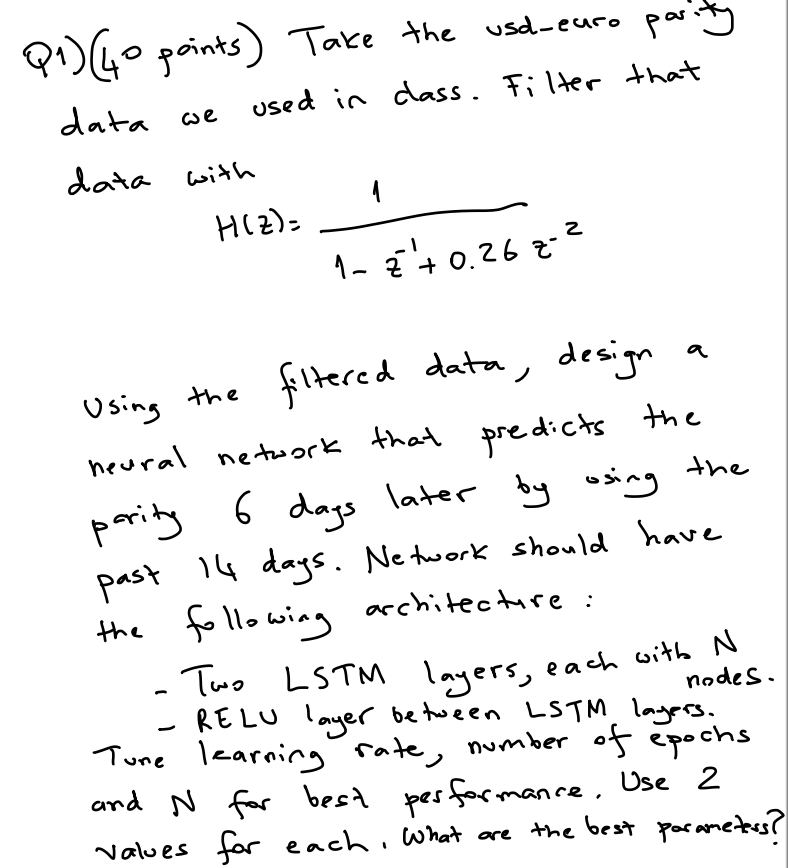 Q1)(40 points) Take the usd-euro parity
data we used in class. Filter that
data with
H(z)= 1 / 1- z^-1 + 0.26 z^-2
Using the filtered data, design a
neural network that predicts the
parity 6 days later by using the
past 14 days. Network should have
the following architecture :
- Two LSTM layers, each with N
nodes.
- RELU layer between LSTM layers.
Tune learning rate, number of epochs
and N for best performance. Use 2
values for each. What are the best parameters?